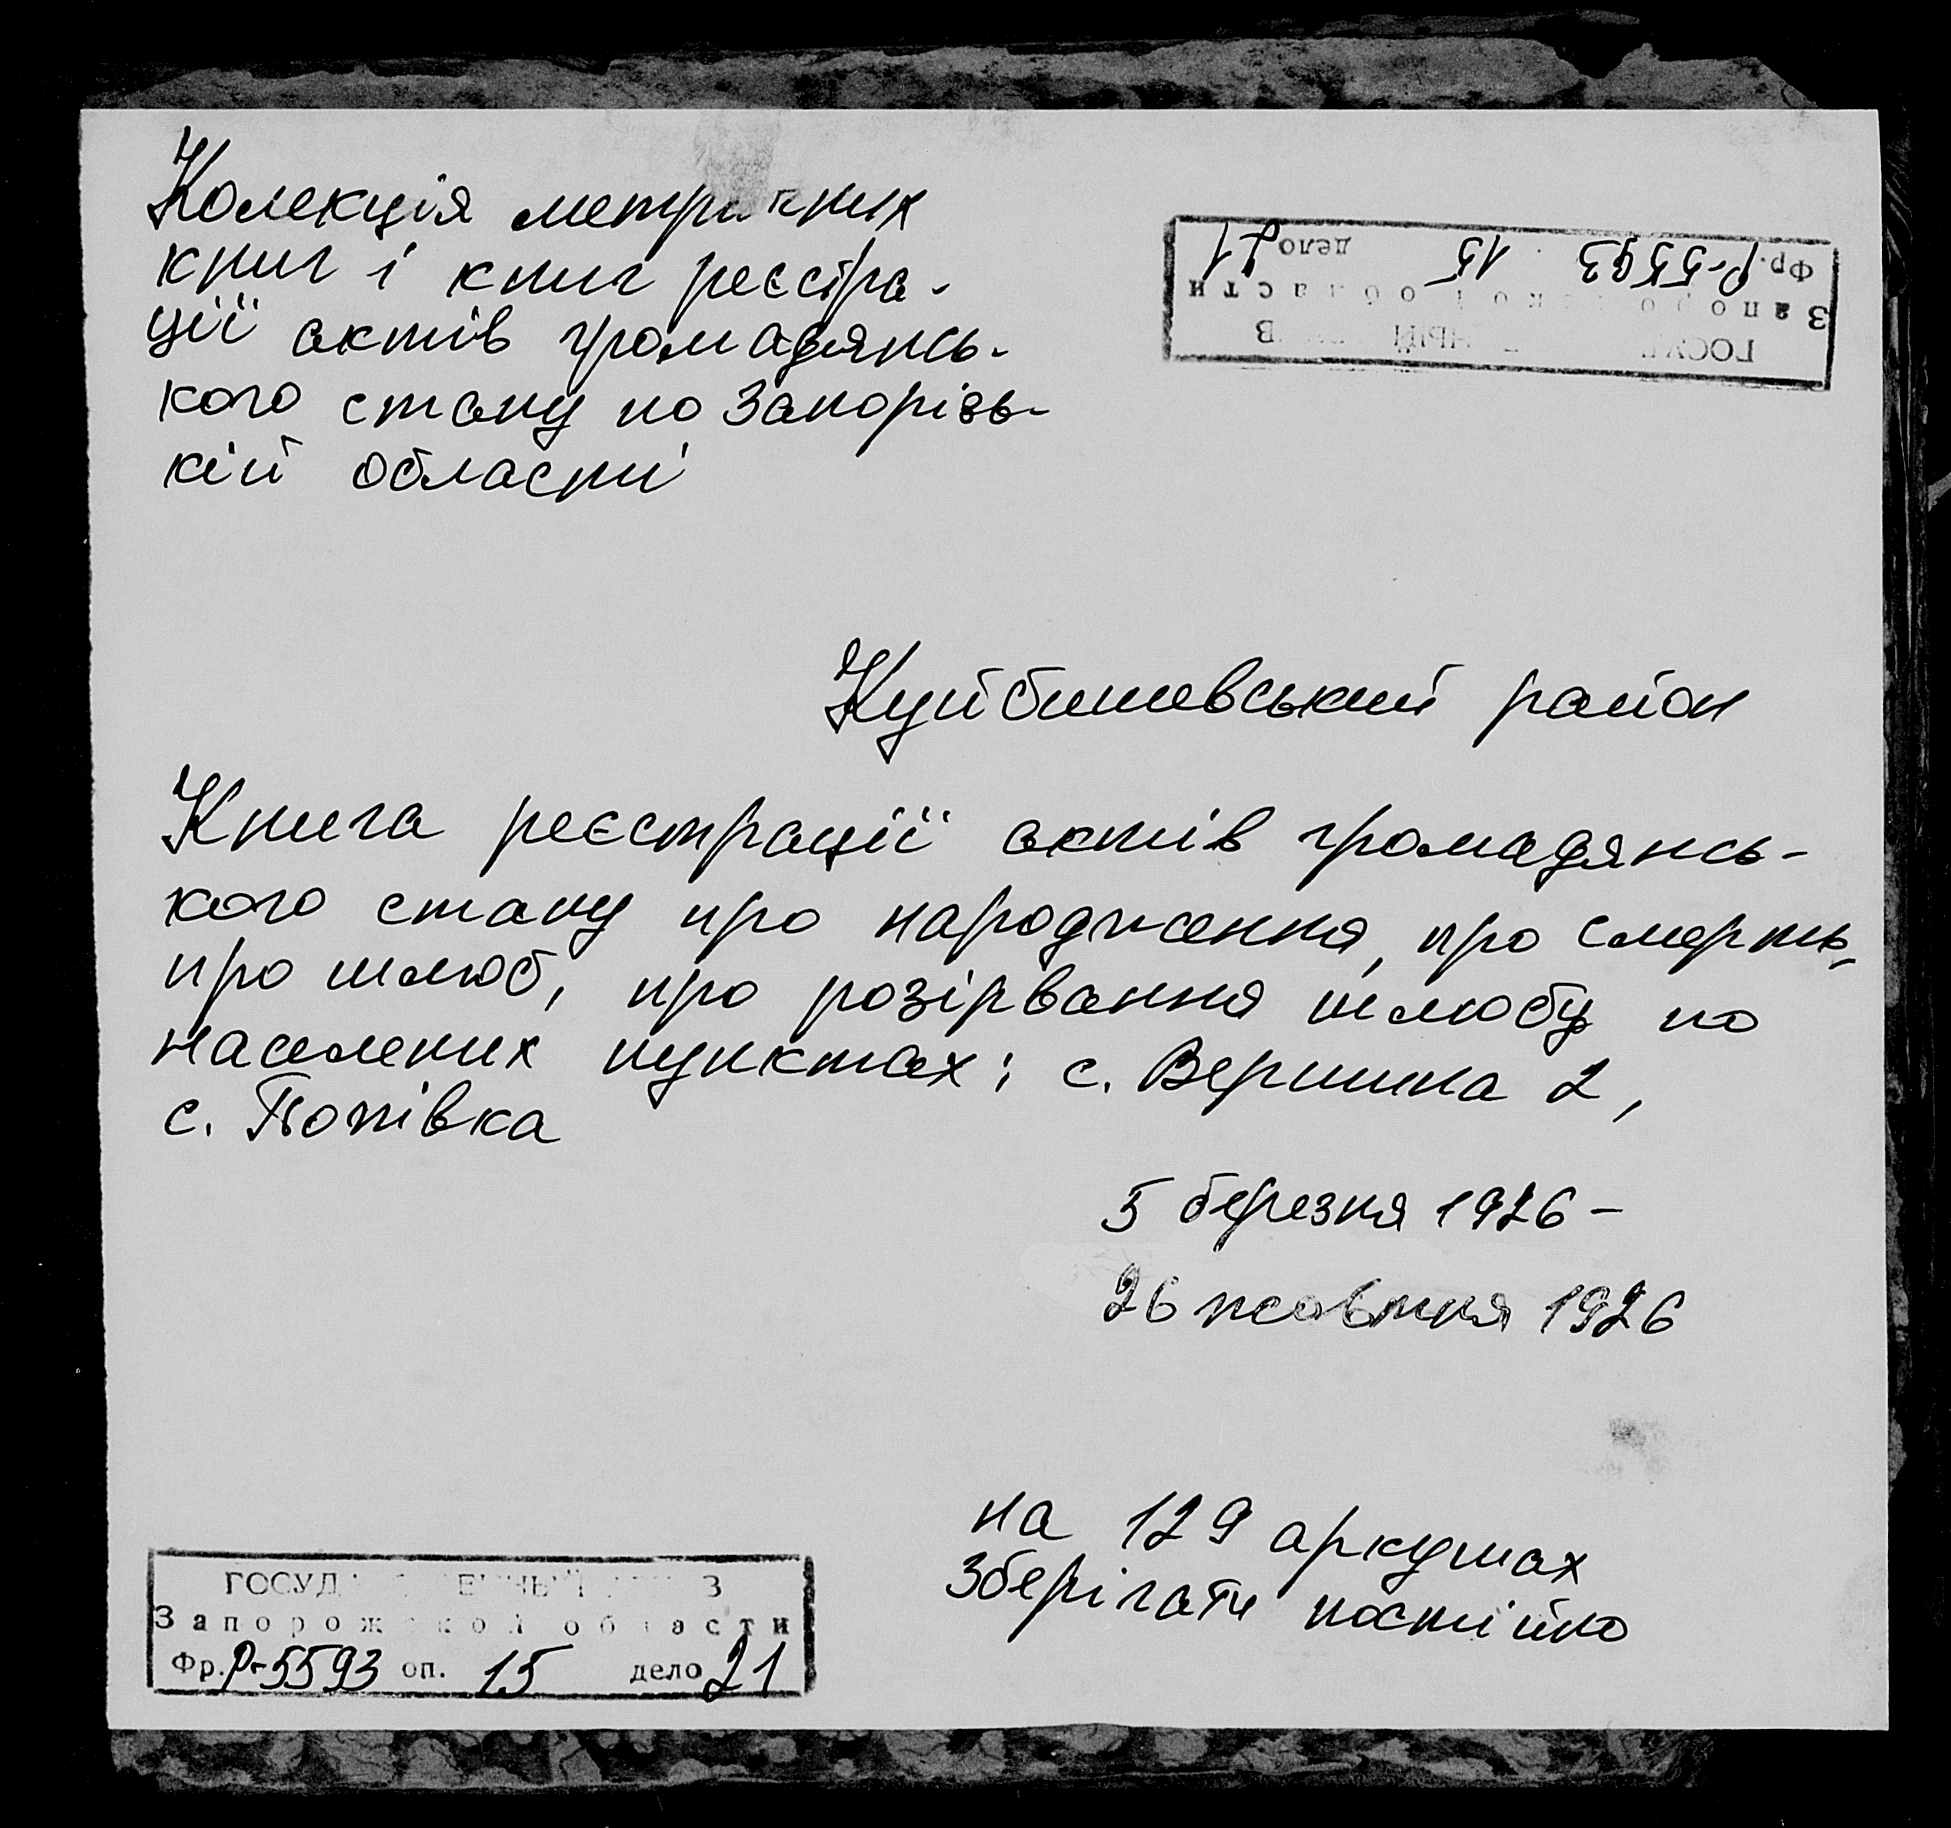 Колекція метричних
книг і книг реєстра-
ції актів громадянсь-
кого стану по Запорізь-
кій області
Фр. Р-5593 15 дело 21
Запорожской области
Куйбишевський район
Книга реєстрації актів громадянсь-
кого стану про народження, про смерть,
про шлюб, про розірвання шлюбу по
населених пунктах: с. Вершина 2,
с. Попівка
5 березня 1926 –
26 жовтня 1926
на 129 аркушах
Зберігати постійно
Запорожской области
Фр. Р-5593 оп. 15 дело 21